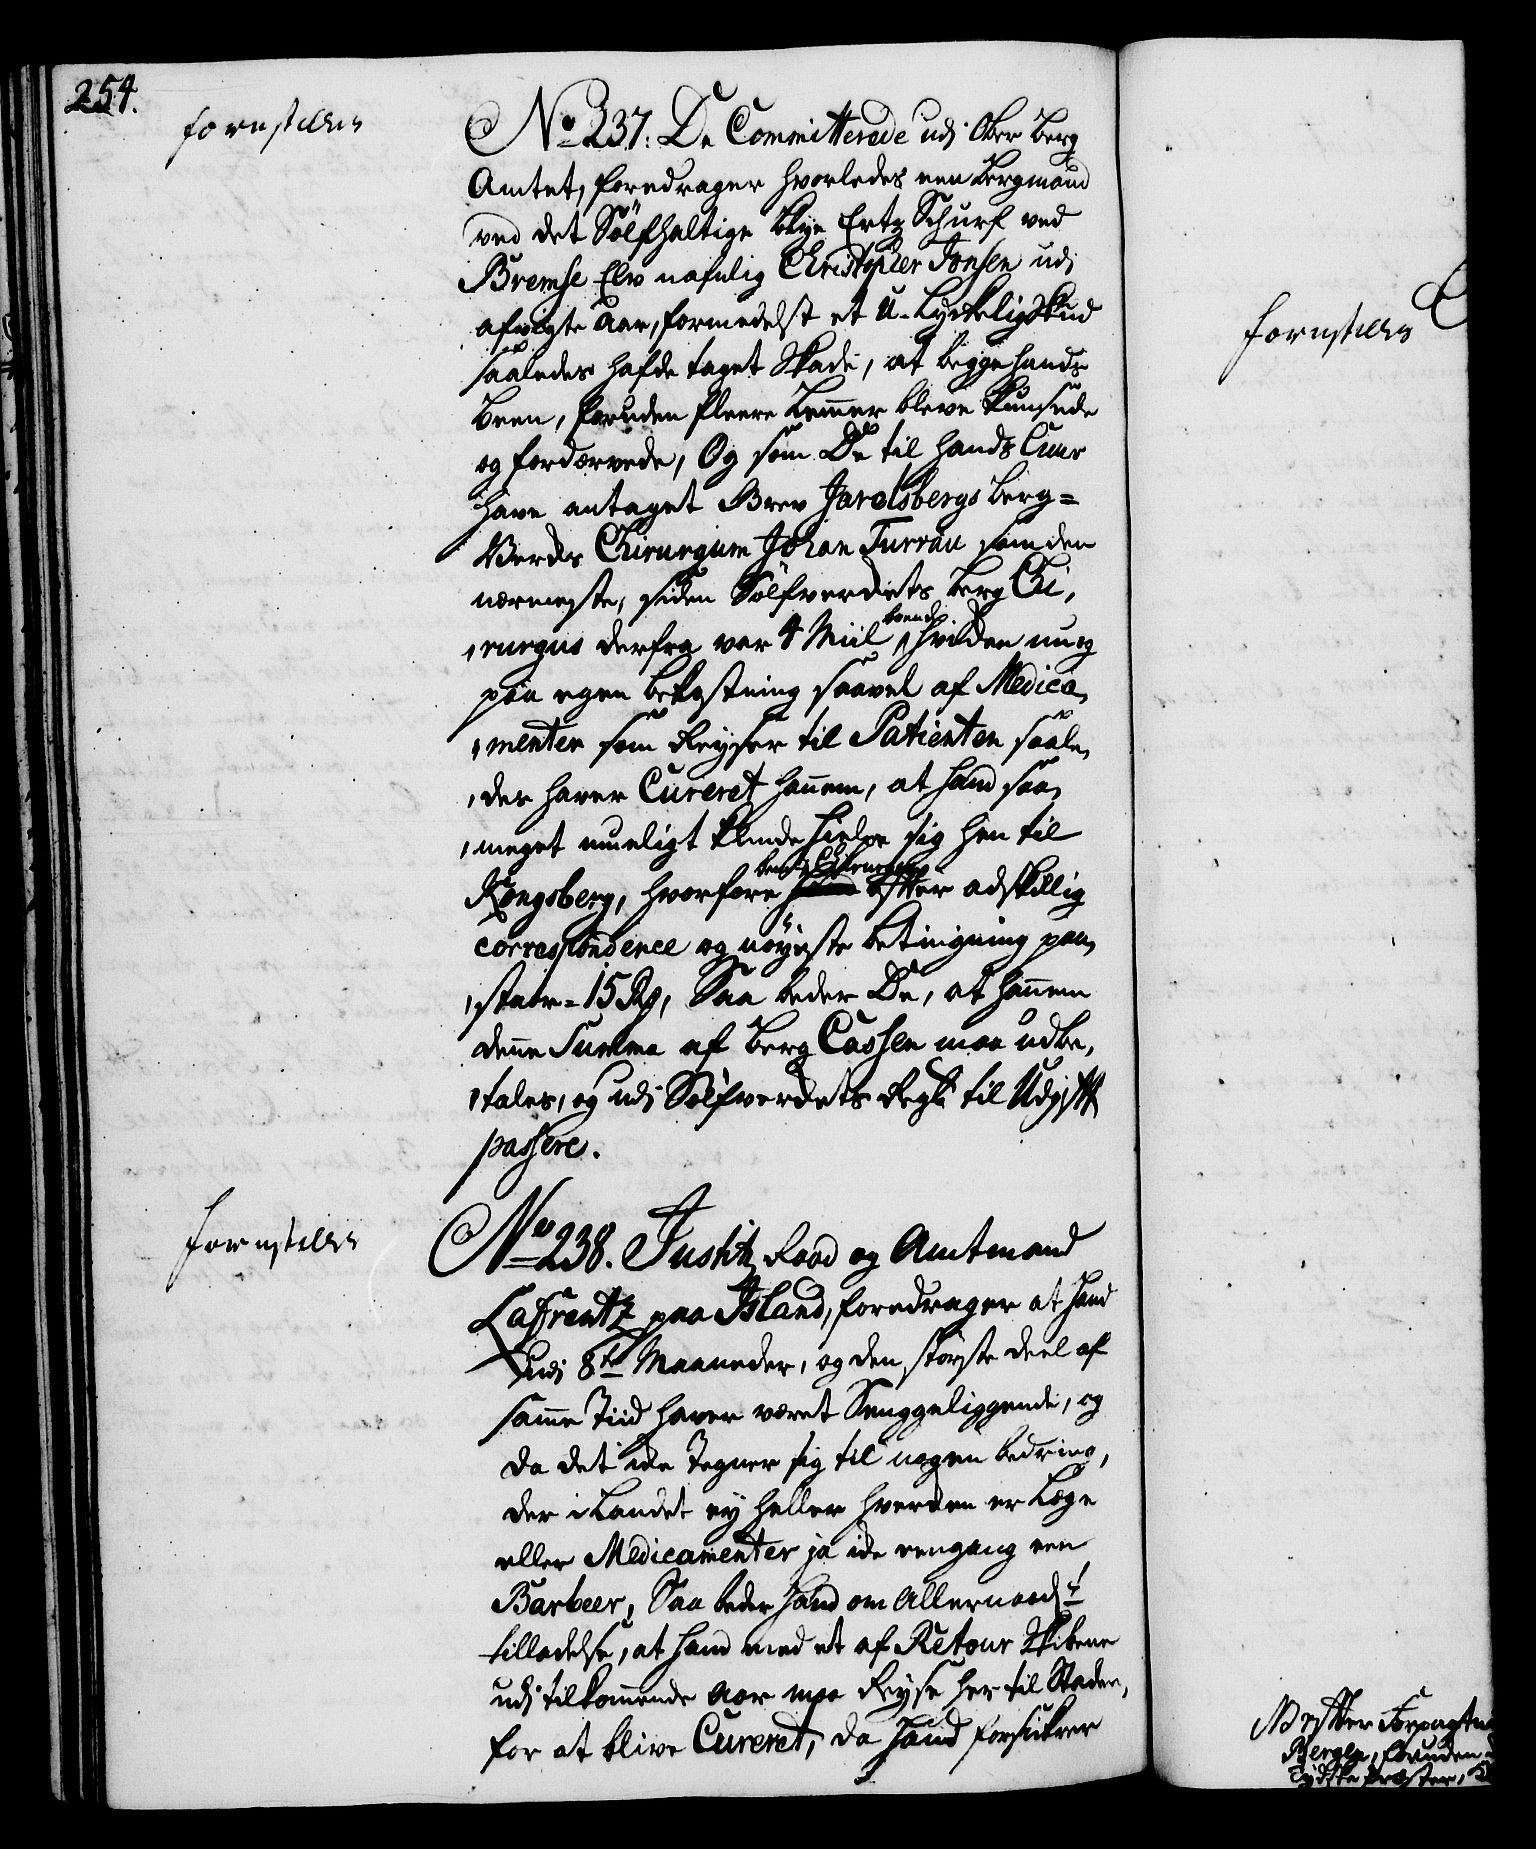 254.
forestilles
No 237. De Committerede udj Ober Berg
Amtet, foredrager hvorledes een Bergmand
ved det Sölfhaltige Blye Ertz Schurf ved
Bremse Elv nafnlig Christopher Jonsen udj
afvigte Aar, formedelst et U-Lyckelig Skud
saaledes hafde taget Skade, at begge hands
Been, foruden fleere Lemmer bleve
og fordærvede, Og som De til hands Cuur
have antaget Grev Jarlsbergs Berg=
Vercks Chirurgum Johan Turrau som den
nærmeste, siden Sölfverckets Berg Chi,
,rurgus derfra var 4 Miil boende, hvilcken nu og
paa egen bekostning saavel af Medica,
,menter som Reyser til Patienten saale,
,des haver Cureret hannem, at hand saa,
,meget mueligt kunde hielpe sig hen til
Kongsberg, hvorfore bem.te Chirurgus efter adskillig
correspondence og nöyeste betingning paa,
,staar = 15 Rd, Saa beder De, at hannem
denne Summa af Berg Cassen maa udbe,
,tales, og udj Sölfverckets Regnk: til Udgift
passere.
forestilles
No 238. Justitz Raad og Amtmand
Laffrentz paa Island, foredrager at hand
udj 8te Maaneder, og den störste deel af
samme Tiid haver været Senggeliggende, og
da det icke Tegner sig til nogen bedring,
der i Landet ey heller hvercken er Læge
eller Medicamenter ja icke eengang een
Barbeer, Saa beder hand om Allernaadst
tilladelse, at hand med et af Retour Skibene
udj tilkommende Aar maa Reyse her til Staden,
for at blive Cureret, da hand forsickrer
forestilles
Forpagtn
Bergen, foruden
Tydske Præster,